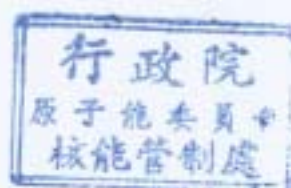 行政院
原子能委員會
核能管制處